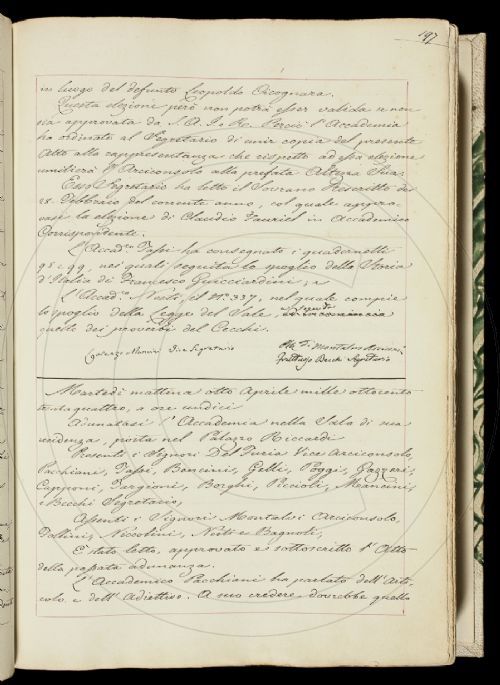 197
in luogo del defunto Leopoldo Cicognara.
Questa elezione però non potrà esser valida se non
sia approvata da S. A. I. e R. Perciò l'Accademia
ha ordinato al Segretario di unir copia del presente
Atto alla rappresentanza che rispetto ad essa elezione
umilierà l'Arciconsolo alla prefata Altezza Sua.
Esso Segretario ha letto il Sovrano Rescritto de'
28. Febbraio del corrente anno, col quale appro-
vasi la elezione di Claudio Fauriel in Accademico
Corrispondente.
L'Accad.co Tassi ha consegnato i quadernetti
98 e 99, nei quali seguita lo spoglio della Storia
d'Italia di Francesco Guicciardini; e
L'Accad.co Nesti, il N.o 337, nel quale compie
lo spoglio della Legge del Sale, e
quello dei proverbi del Cecchi.
Lorenzo Mancini Segretario
Montalvo
Fruttuoso Becchi Segretario
Martedì mattina otto Aprile mille ottocento
trentaquattro, a ore undici
Adunatasi l'Accademia nella Sala di sua
residenza, posta nel Palazzo Riccardi
Presenti i Signori Del Furia Vice Arciconsolo,
Pacchiani, Tassi, Bencini, Gelli, Poggi, Gazzeri,
Capponi, Targioni, Borghi, Piccioli, Mancini,
e Becchi Segretario,
Assenti i Signori Montalvi Arciconsolo,
Follini, Niccolini, Nesti e Bagnoli,
È stato letto, approvato e sottoscritto l'Atto
della passata adunanza.
L'Accademico Pacchiani ha parlato dell'Arti-
colo e dell'Adiettivo. A suo credere dovrebbe quello